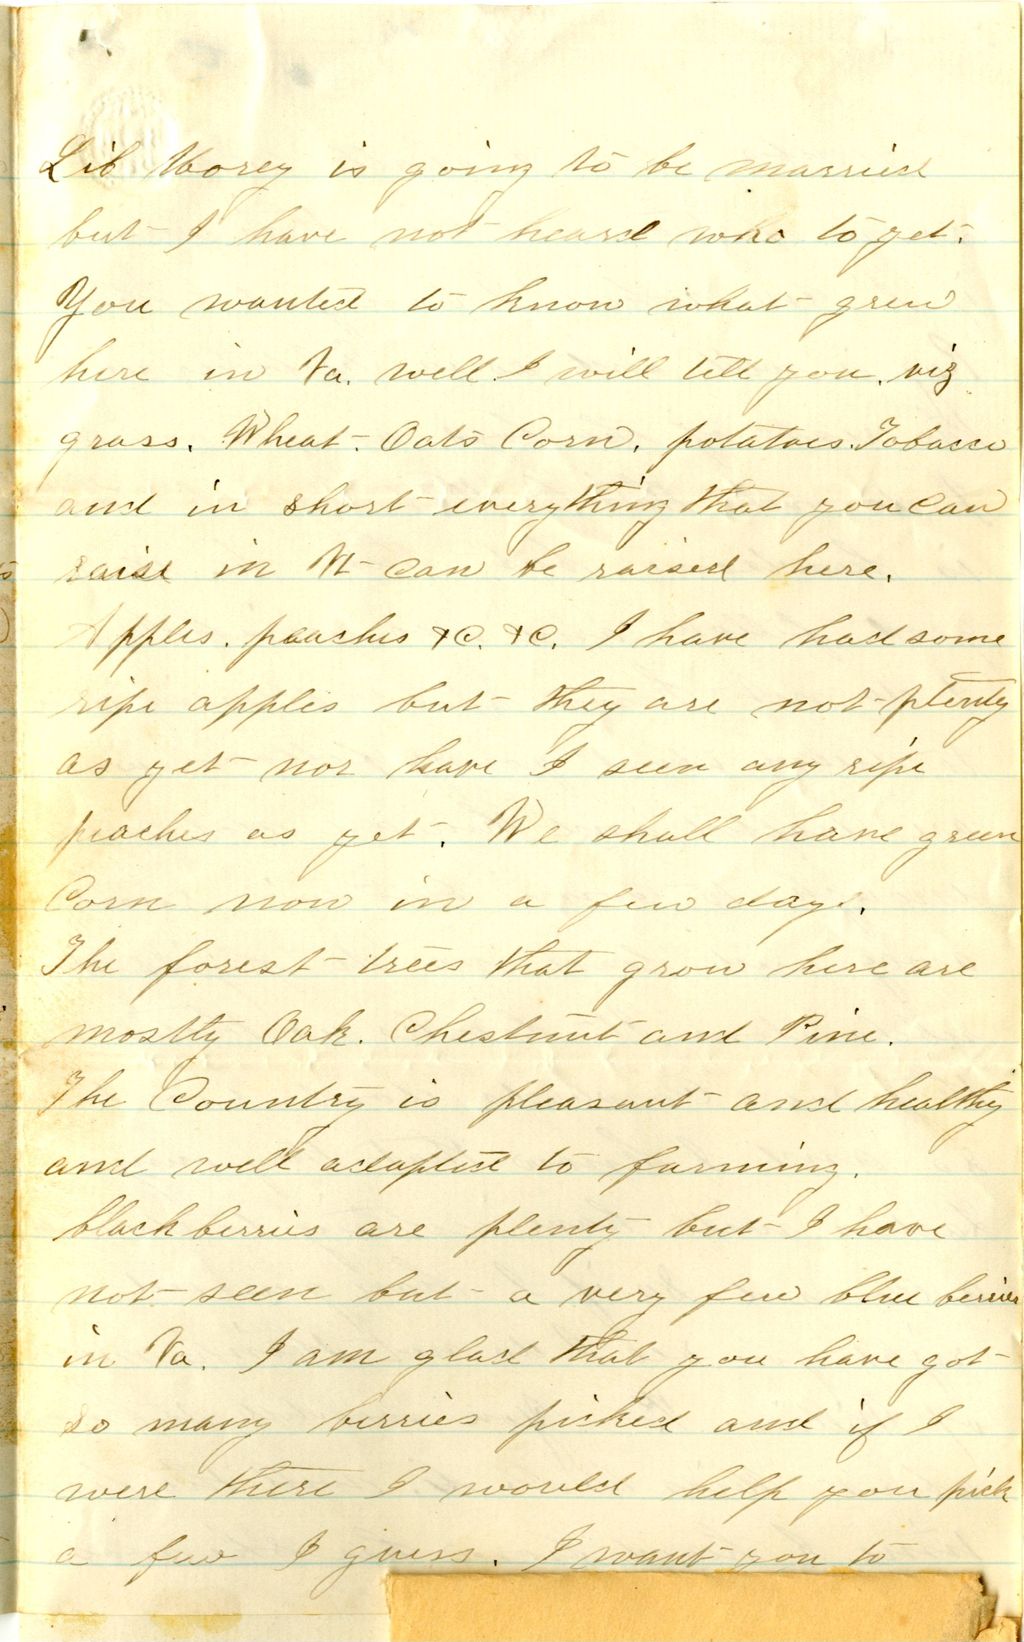 Lib Morey is going to be married
but I have not heard who to yet.
You wanted to know what grew
here in Va. well I will tell you. viz
grass. Wheat. Oats Corn. potatoes. Tobacco
and in short everything that you can
raise in Vt can be raised here.
Apples. peaches &C. &C. I have had some
ripe apples but they are not plenty
as yet nor have I seen any ripe
peaches as yet. We shall have green
Corn now in a few days.
The forest trees that grow here are
mostly Oak. Chestnut and Pine.
The Country is pleasant and healthy
and well adapted to farming.
blackberries are plenty but I have
not seen but a very few blue berries
in Va. I am glad that you have got
so many berries picked and if I
were there I would help you pick
a few I guess. I want you to